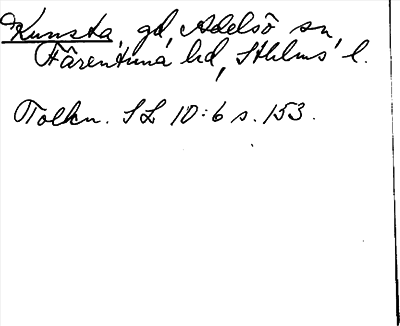 Kunsta, gd, Adelsö sn,
Färentuna hd, Sthlms l.
Tolkn. SL 10:6 s. 153.